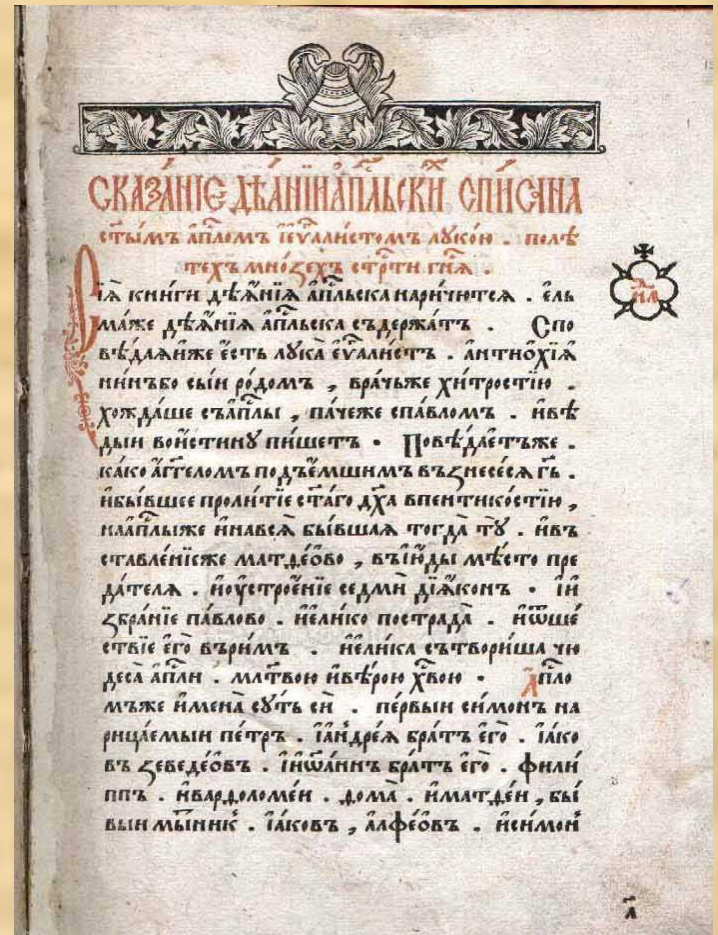 СКАЗА́НІЕ ДѢА́НІИ А҆П҃ЛЬСКИ СПИ́САНА
ст҃ы́мъ а҆пⷭ҇ломъ і҆є҆ѵⷢ҇али́стомъ лꙋко́ю . по лѣ́
техъ мно́ѕехъ стрⷭ҇ти гн҃ѧ .
Сїѧ̀ кни́ги дѣѧ҆́нїѧ а҆пⷭ҇льска нари́чютсѧ . є҆ль
ма́же дѣѧ҆́нїѧ а҆пⷭ҇льска съдержа́тъ . Спо
вѣ́даѧи҆же є҆́сть лꙋка̀ є҆ѵⷢ҇али́ст . а҆нтиѡ҆хїѧ҆
ни́нъбо сы́и ро́домъ , вра́чьже хи́тростїю .
хожда́ше съа҆пⷭ҇лы , па́чеже спа́вломъ . и҆вѣ́
дыи вои́стинꙋ пи́шетъ . Повѣ́даетъже .
ка́ко а҆́гг҃еломъ подъе́мшимъ възнесе́сѧ гь҃ .
и҆бы́вшее проли́тїе ст҃а́го дх҃а впентикѡ́стїю ,
наа҆пⷭ҇лыже и҆навсѧ̀ бы́вшаѧ тогда̀ тꙋ . и҆въ
ставле́нїеже матѳе́ѡво , въі҆ю҆́ды мѣ́сто пре
да́телѧ . и҆оу҆строе́нїе седмѝ дїѧ́конъ . і҆и
збра́нїе па́влово . и҆є҆ли́ко пострада̀ . и҆ѿше́
ствїе є҆го̀ въри́мъ . и҆є҆ли́ка сътвори́ша чю
деса̀ а҆пⷭ҇ли . мл҃твою и҆вѣ́рою хв҃ою . А҆пⷭ҇ло
мъже и҆мена̀ сꙋ́ть сѝ . пе́рвыи си́монъ на
рица́емыи пе́тръ . і҆а҆ндре́ѧ бра́тъ є҆го̀ . і҆а́ко
въ зеведе́ѡвъ . і҆и҆ѡа́ннъ бра́тъ є҆го̀ . фили́
ппъ . и҆варѳоломе́и . ѳома̀ . и҆матѳе́и , бы́
выи мы́тникъ . і҆а́ковъ , а҆лфе́ѡвъ . и҆си́монъ
а҃